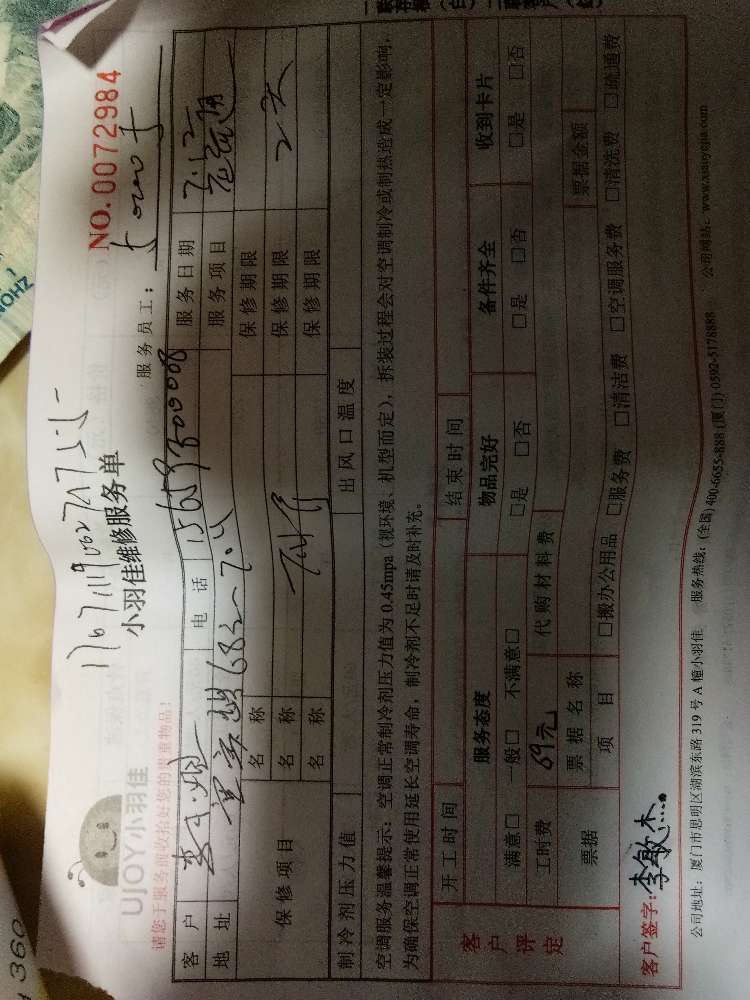 UJOY小羽佳
请您于服务前收拾好您的贵重物品!
小羽佳维修服务单
NO.0072984
服务员工:
客户
电话
服务日期 7.12
地址
服务项目
保修项目
名称
保修期限
名称
保修期限 2天
名称
保修期限
制冷剂压力值
出风口温度
空调服务温馨提示:空调正常制冷剂压力值为0.45mpa(视环境、机型而定),拆装过程会对空调制冷或制热造成一定影响,
为确保空调正常使用延长空调寿命,制冷剂不足时请及时补充。
客户评定
开工时间
结束时间
服务态度
物品完好
备件齐全
收到卡片
满意□ 一般□ 不满意□
□是 □否
□是 □否
□是 □否
工时费 69元
代购材料费
票据
票据名称
票据金额
项目
□搬办公用品 □服务费 □清洁费 □空调服务费 □清洗费 □疏通费
客户签字:李敏杰
公司地址:厦门市思明区湖滨东路319号A幢小羽佳 服务热线:(全国)400-6655-888(厦门)0592-5178888 公司网站:www.xiaoyujia.com
360